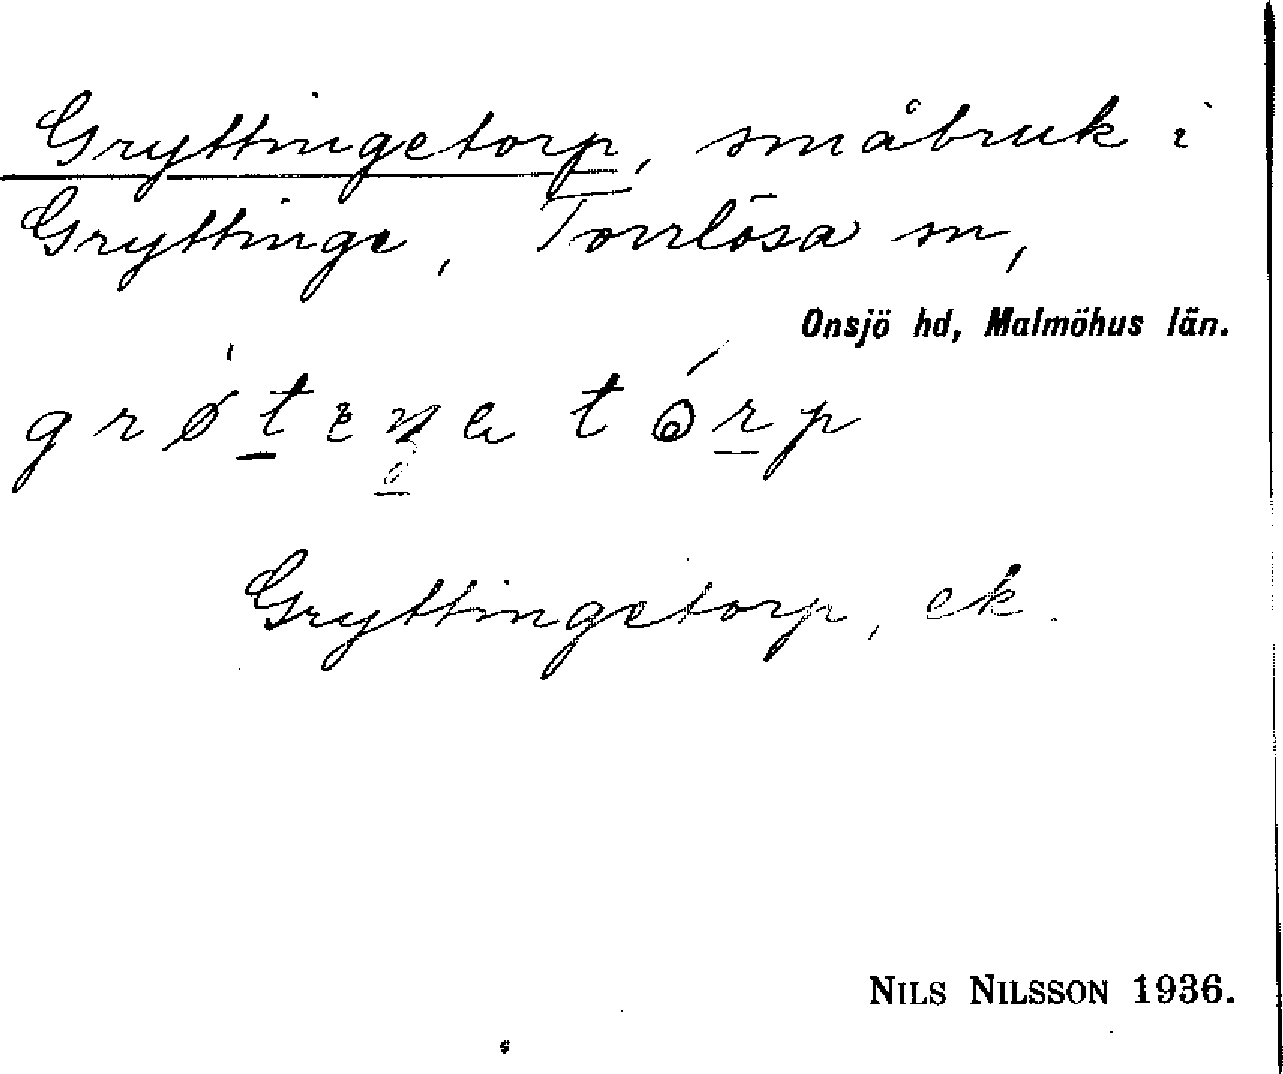 Gryttingetorp, småbruk i
Gryttinge, Torrlösa sn,
Onsjö hd, Malmöhus län.
Gryttingetorp, ek.
NILS NILSSON 1936.